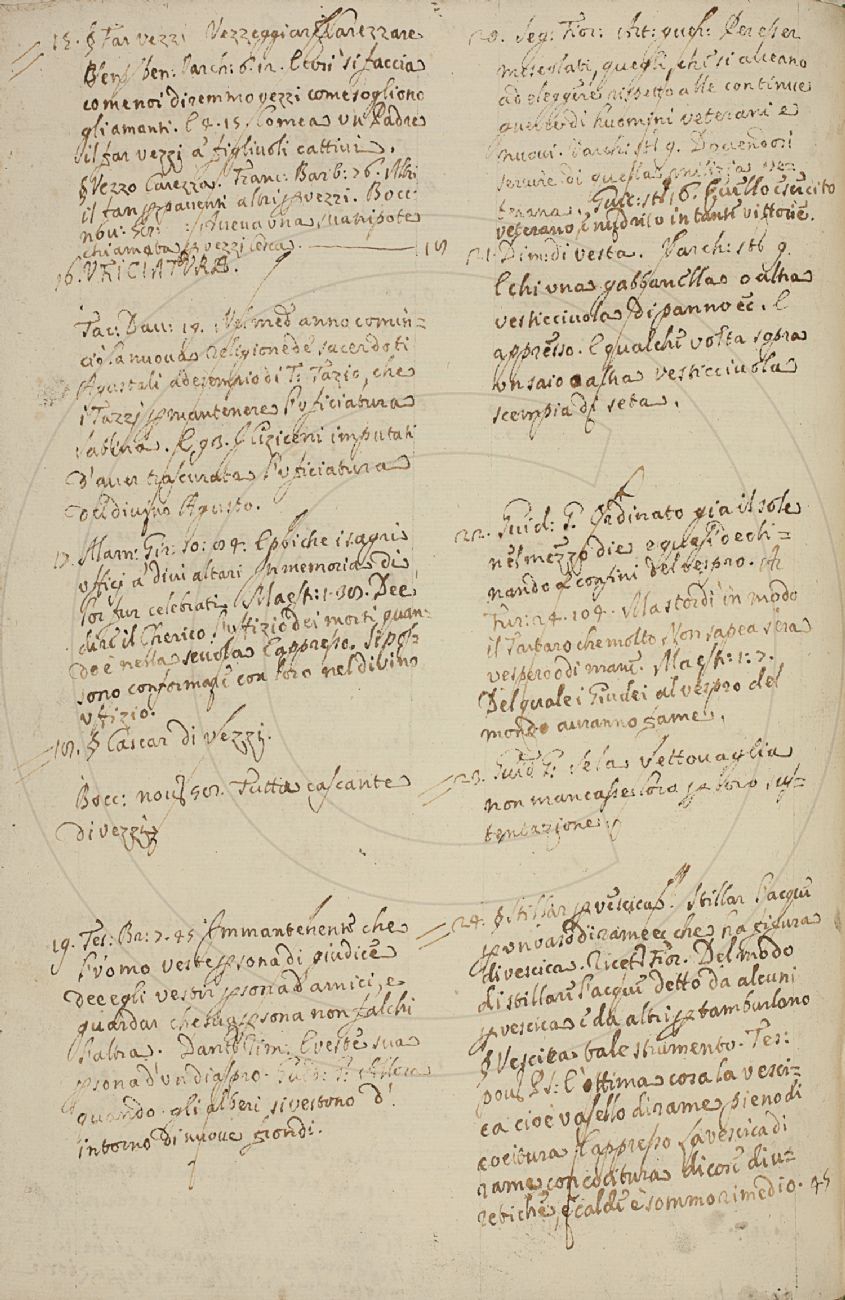 15. § Far vezzi Vezzeggiar Carezzare
Ben: Varch: 6. 12. E così si faccia
come noi diremmo vezzi come sogliono
gli amanti. E 4. 15. Come a un Padre
il far vezzi a' figliuoli cattivi.
§ Vezzo Carezza. Franc: Barb: 76. Altri
il fan per paventi altri per vezzi. Bocc:
chiamata per vezzi Cesca. 18
16. UFICIATURA.
Tac: Dav: 18. Nel med.º anno comin=
ciò la nuova Religione de' sacerdoti
Agustali ad esempio di T. Tazio, che
i Tazzj per mantenere l'uficiatura
Sabina. E 93. I Ciziceni imputati
d'aver trascurata l'uficiatura
del divino Agusto.
17. Alam: Gir: 10: 104: E poi che i sagri
uffici a' divi altari In memoria di
lor fur celebrati. Maestr: 1. 30. Dee
dire il Cherico l'uffizio dei morti quan=
do è nella scuola E appresso. Si pos=
sono conformare con loro nel divino
uffizio.
18. § Cascar di Vezzi.
Bocc: nov: 50. Tutta cascante
di vezzi
19. Tes: Br: 7. 45 Immantenente che
l'uomo veste persona di giudice
dee egli vestir persona d'amici, e
guardar che sua persona non falchi
l'altra. Dant: Rim: E veste sua
persona d'un diaspro. Guid: G. Allora
quando gli alberi si vestono d'
intorno di nuove frondi.
20. Seg: Fior: Art: guer: Per esser
mescolati, quegli, che si aveano
ad eleggere rispetto alle continue
guerre di huomini veterani e
nuovi. Varch: st: 9. Dovendosi
servire di quella milizia ve=
terana. Guic: st: 16. Quello esercito
veterano, e nudrito in tante vittorie.
21. Dim: di vesta. Varch: st: 9.
E chi una gabbanella o altra
vesticciuola di panno ec. E
appresso. E qualche volta sopra
un saio o altra vesticciuola
scempia di seta.
22. Guid: G. Ordinato già il sole
nel mezzo die e quasi dechi=
nando a' confini del vespro. Ar:
Fur: 24. 104. Ma stordì in modo
il Tartaro che molto Non sapea s'era
vespero o di mane. Maestr: 1: 7.
Del quale i Giudei al vespro del
mondo avranno fame.
23. Guid: G: Se la vettovaglia
non mancasse loro per loro sus=
tentazione.
24. § Stillar per vescica. Stillar l'acque
per un vaso di rame ec che ha figura
di vescica. Ricet: Fior. Del modo
di stillare l'acque detto da alcuni
per vescica e da altri per tamburlano
§ Vescica tale strumento. Tes:
pov: P. S: È ottima cosa la vesci=
ca cioè vasello di rame pieno di
cocitura E appresso La vescica di
rame con cocitura di cose diu=
retiche, e calde è sommo rimedio. 45